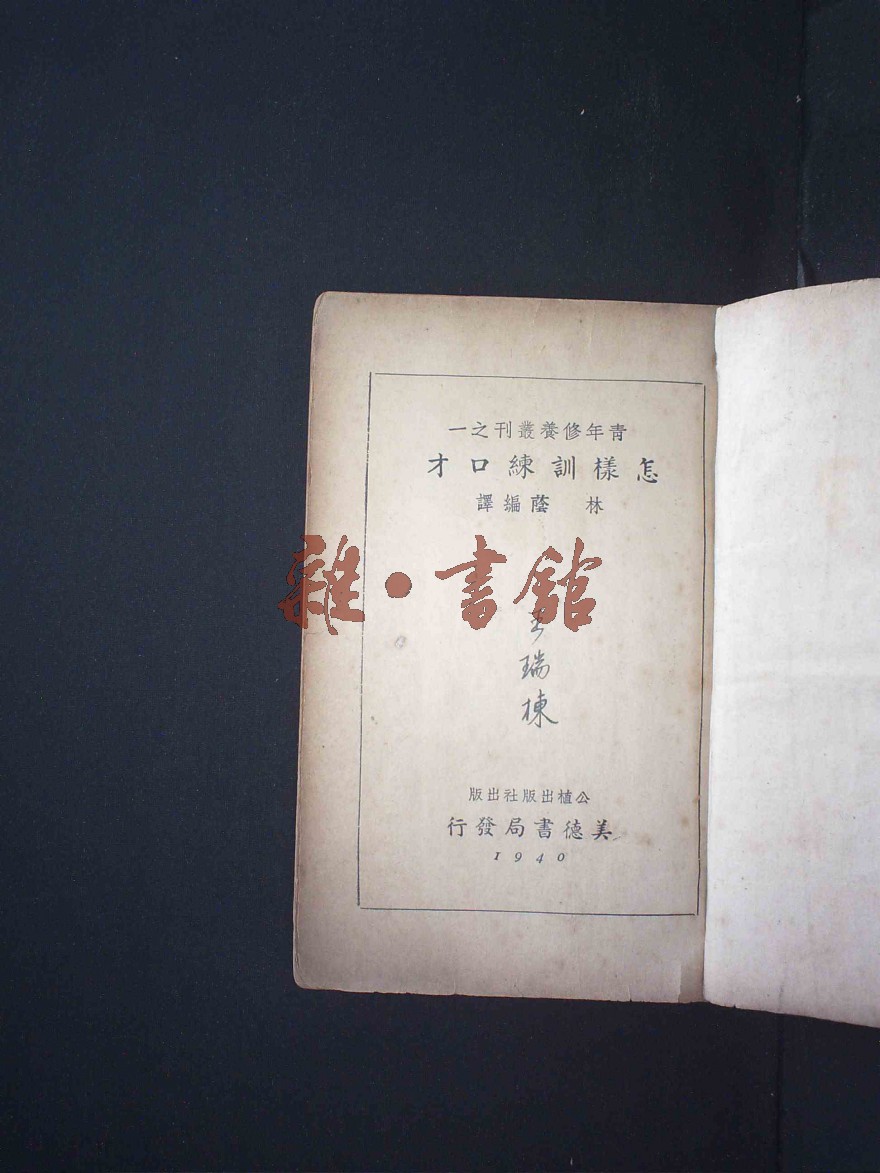 青年修養叢刊之一
怎樣訓練口才
林蔭編譯
雜·書館
王瑞棟
公植出版社出版
美德書局發行
1940